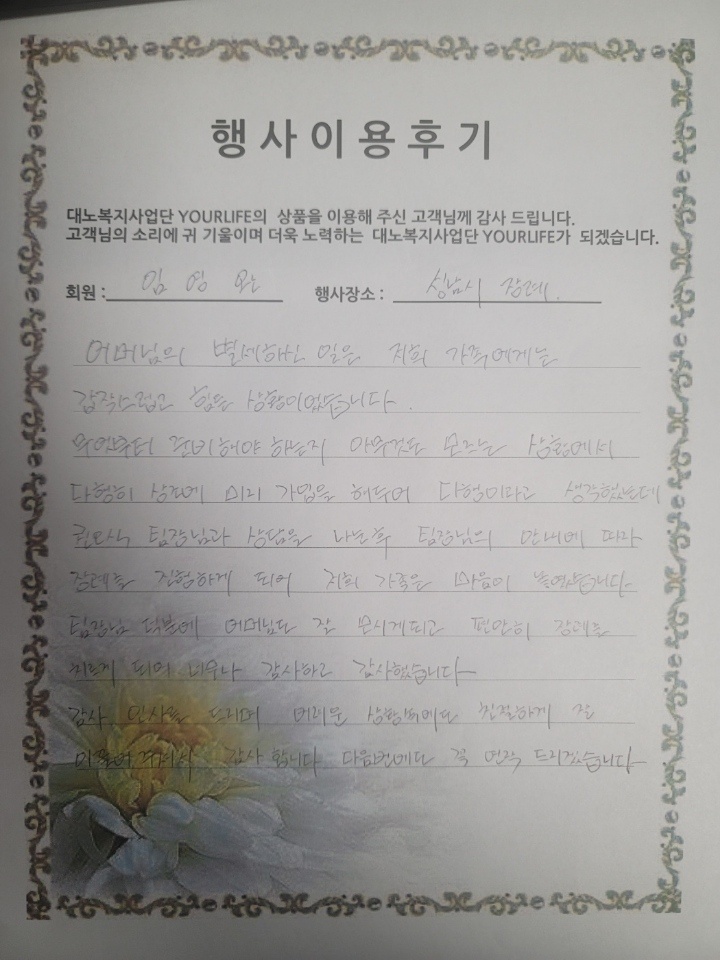 행사이용후기
대노복지사업단 YOURLIFE의 상품을 이용해 주신 고객님께 감사 드립니다.
고객님의 소리에 귀 기울이며 더욱 노력하는 대노복지사업단 YOURLIFE가 되겠습니다.
회원 : 임영 행사장소 : 성남시 장례.
어머님의 별세하신 일은 저희 가족에게는
갑작스럽고 힘든 상황이었습니다.
무엇부터 준비해야 하는지 아무것도 모르는 상황에서
다행히 상조에 미리 가입을 해두어 다행이라고 생각했는데
권오식 팀장님과 상담을 나눈후 팀장님의 안내에 따라
장례를 진행하게 되어 저희 가족은 마음이 놓였습니다
팀장님 덕분에 어머님도 잘 모시게되고 편안히 장례를
치르게 되어 너무나 감사하고 감사했습니다
감사 인사를 드리며 어려운 상황에도 친절하게 잘
이끌어 주셔서 감사 합니다 다음번에도 꼭 연락 드리겠습니다